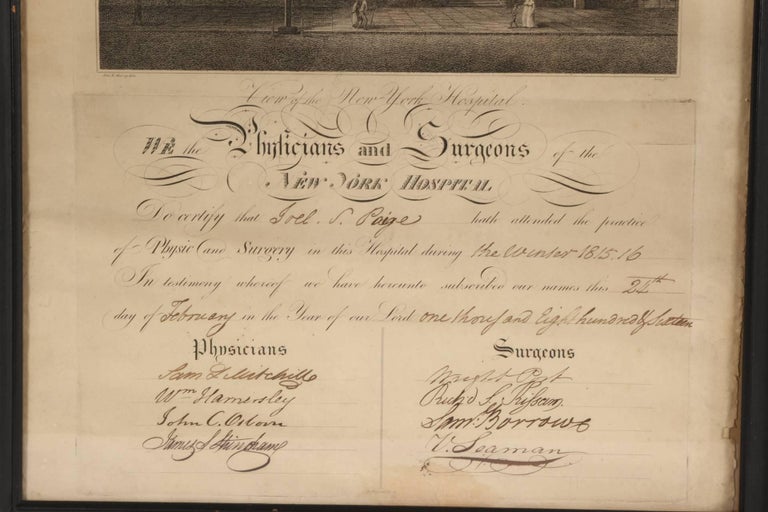 View of the New York Hospital.
WE the Physicians and Surgeons of the
NEW YORK HOSPITAL
Do certify that Joel. S. Paige hath attended the practice
of Physic (and Surgery in this Hospital during the Winter 1815.16
In testimony whereof we have hereunto subscribed our names this 24th
day of February in the Year of our Lord one thousand Eight hundred & Sixteen
Physicians Surgeons
Saml L Mitchill Wright Post
Wm Hamersley Richd S. Kissam
John C. Osborn Saml. Borrowe
James S Stringham V. Seaman